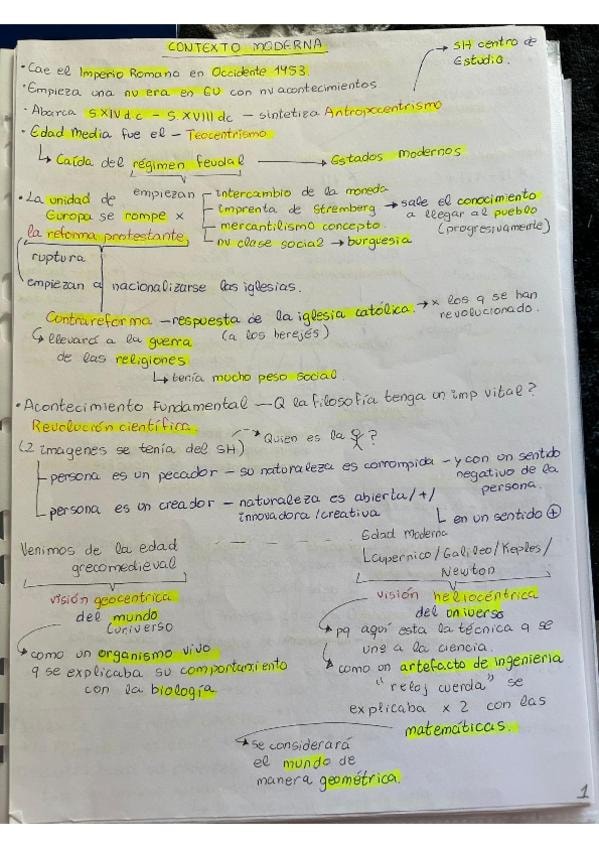 CONTEXTO MODERNA
• Cae el Imperio Romano en Occidente 1453.
→ SH centro de Estudio.
• Empieza una nv era en EU con nv acontecimientos
• Abarca S.XIV d.c - S.XVIII d.c - sintetiza Antropocentrismo
• Edad Media fue el - Teocentrismo
↳ Caída del régimen feudal → Estados modernos
empiezan
intercambio de la moneda
imprenta de Stremberg → sale el conocimiento a llegar al pueblo (progresivamente)
mercantilismo concepto.
nv clase social → burguesia
• La unidad de
Europa se rompe x
la reforma protestante,
ruptura
empiezan a nacionalizarse las iglesias.
Contrareforma - respuesta de la iglesia católica. → x los q se han revolucionado.
(a los herejés)
↳ llevará a la guerra
de las religiones
↳ tenía mucho peso social.
• Acontecimiento Fundamental - Q la filosofía tenga un imp vital?
Revolución científica.
(2 imagenes se tenía del SH) → Quien es la ?
persona es un pecador - su naturaleza es corrompida - y con un sentido negativo de la persona.
persona es un creador - naturaleza es abierta/+/
innovadora/creativa
↳ en un sentido ⊕
Venimos de la edad
grecomedieval
visión geocentrica
del mundo
(universo
→ como un organismo vivo
q se explicaba su comportamiento
con la biología
Edad Moderna
Cupernico/Galileo/Keples/
Newton
visión heliocéntrica
del universo
→ pq aquí esta la técnica q se
une a la ciencia.
→ como un artefacto de ingenieria
"reloj cuerda" se
explicaba x 2 con las
matemáticas.
→ se considerará
el mundo de
manera geométrica.
1